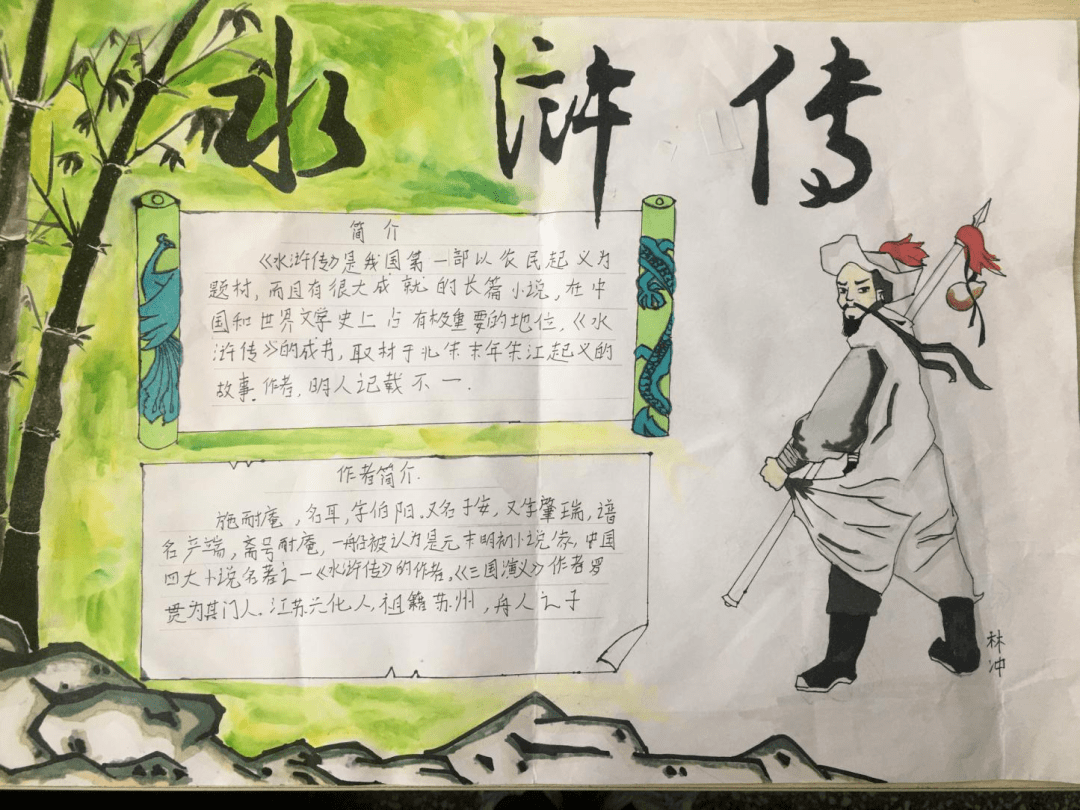 水浒传
简介
《水浒传》是我国第一部以农民起义为
题材，而且有很大成就的长篇小说，在中
国和世界文学史上占有极重要的地位，《水
浒传》的成书，取材于北宋末年宋江起义的
故事．作者，明人记载不一．
作者简介．
施耐庵，名耳，字伯阳．又名子安，又字肇瑞，谱
名彦端，斋号耐庵，一般被认为是元末明初小说家，中国
四大小说名著之一《水浒传》的作者，《三国演义》作者罗
贯为其门人．江苏兴化人，祖籍苏州，舟人之子
林
冲